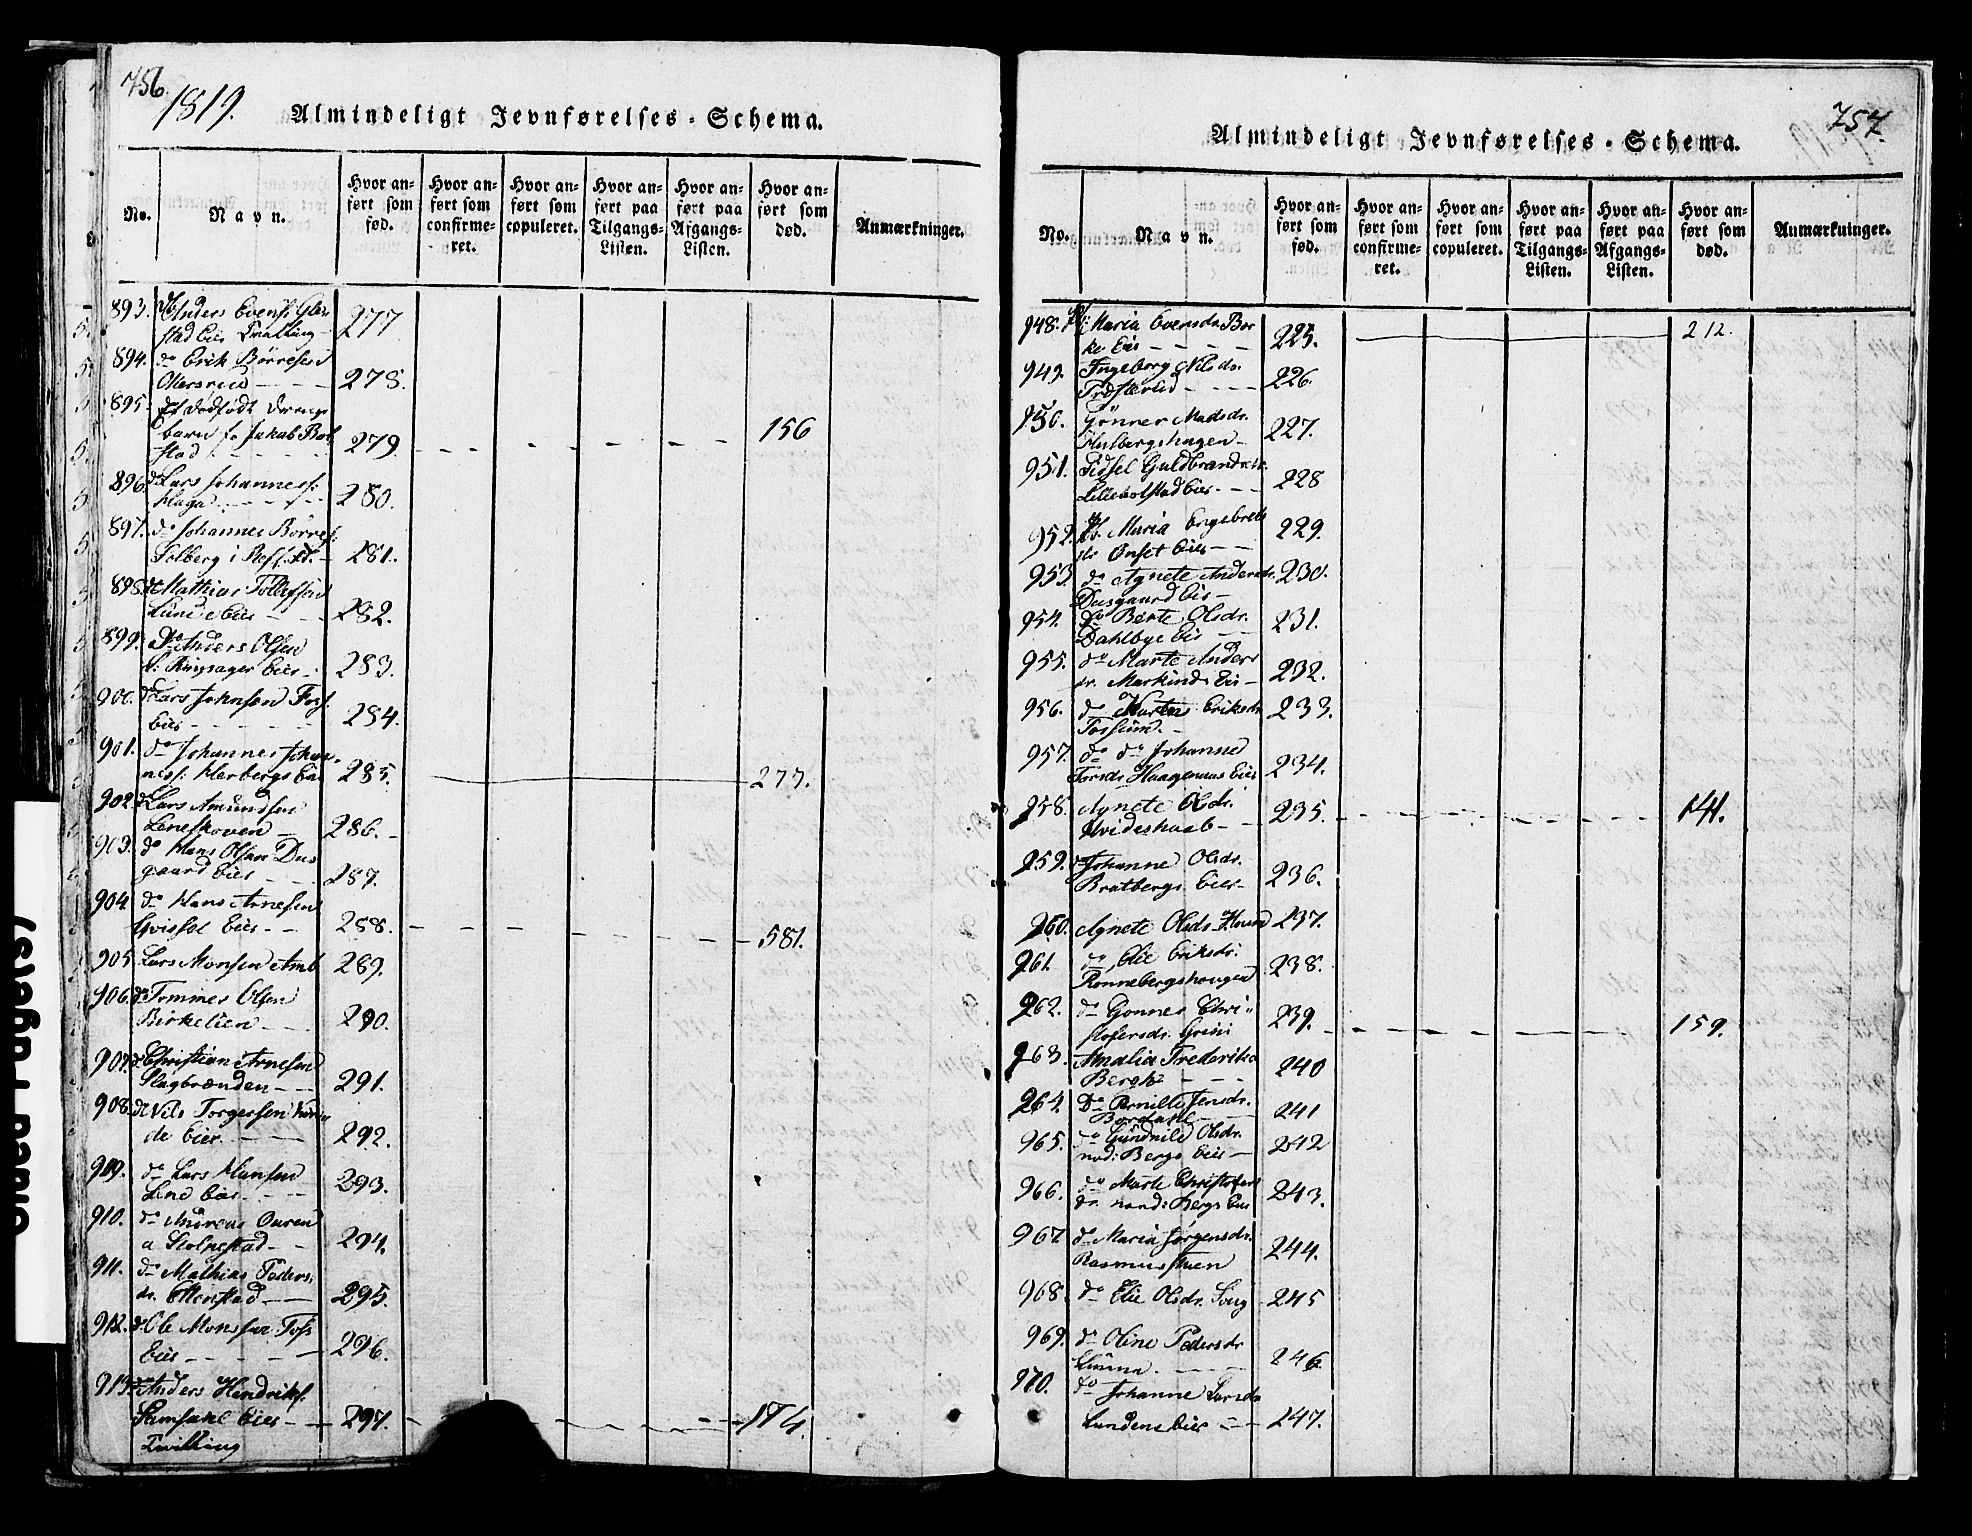 756.
1819. Almindeligt Jevnførelses-Schema.
No. Navn. Hvor anført som fød. Hvor anført som confirmeret. Hvor anført som copuleret. Hvor anført paa Tilgangs-Listen. Hvor anført paa Afgangs-Listen. Hvor anført som død. Anmærkninger.
893. Anders Evens:
stad Eier Tvilling 277
894. do Erik Börresen
278.
895. dödfödt Drenge
barn f. Jakob Bol
stad 279 156
896. do Lars Johanness:
Haga 280.
897. do Johannes Börres:
Solberg i 281.
898. do Mathias Tollefsen
Lunde Eier 282.
899. do Anders Olsen
Ringsager Eier 283.
900. do Lars Johnsen Fos
Eier 284.
901. do Johannes Johan-
ness: Herbergs Eie 285. 277.
902. do Lars Amundsen
Leneskoven 286.
903. do Hans Olsen Dus
gaard Eier 287.
904. do Hans Arnesen
Qvissel Eier 288. 581.
905. Lars Monsen Amb 289.
906. do Tommes Olsen
Birkelien 290.
907. do Christian Arnesen
Slagbrænden 291.
908. do Nils Torgersen
de Eier 292.
909. do Lars Hansen
Lene Eier 293.
910. do Andreas
a Stolpestad 294.
911. do Mathias Peders:
295.
912. do Ole Monsen Foss
Eier 296.
913. do Anders Hendriks:
Eier 297. 174.
Tvilling
757.
Almindeligt Jevnførelses-Schema.
No. Navn. Hvor anført som fød. Hvor anført som confirmeret. Hvor anført som copuleret. Hvor anført paa Tilgangs-Listen. Hvor anført paa Afgangs-Listen. Hvor anført som død. Anmærkninger.
948. Maria Evensdr Bor
ke Eier 225. 212.
949. Ingeborg Nilsdr.
226.
950. Gönner Madsdr.
Hulbergshagen 227.
951. Sidsel Guldbrandsdr.
Lillebolstad Eier 228
952. Maria Engebrets
dr Onset Eier 229.
953. do Agnete Andersdr. 230.
Dusgaard Eier
954. do Berte Olsdr.
Dahlbye Eier 231.
955. do Marte Anders
dr. Eier 232.
956. do Marten Eriksdr 233.
Fossum.
957. do do Johanne
Eier 234.
958. Agnete Olsdr.
235. 141.
959. do Johanne Olsdr.
Bratbergs Eier 236.
960. Agnete Olsdr. 237.
961. do Elie Eriksdr:
Rönnebergshougen 238.
962. do Gonner Chri-
stofersdr. Grini 239. 159.
963. Amalia Frederika
Bergh 240
964. Do Pernille Jensdr.
241
965. do Gundhild Olsdr.
nod: Bergs Eier 242
966. do Marte Christofers
dr. nord: Bergs Eier 243.
967. do Maria Jörgensdr.
Rasmusstuen 244.
968. do Elie Olsdr. 245
969. do Oline Pedersdr
246
970. do Johanne Larsdr
Lundens Eier 247.